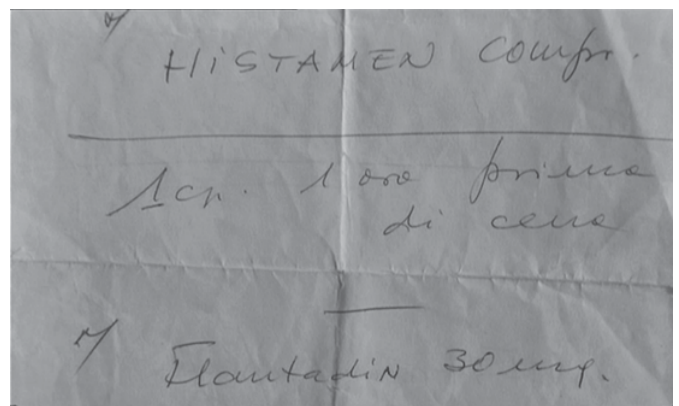 HISTAMEN compr.
1 cp. 1 ora prima
di cena
Flantadin 30 mg.